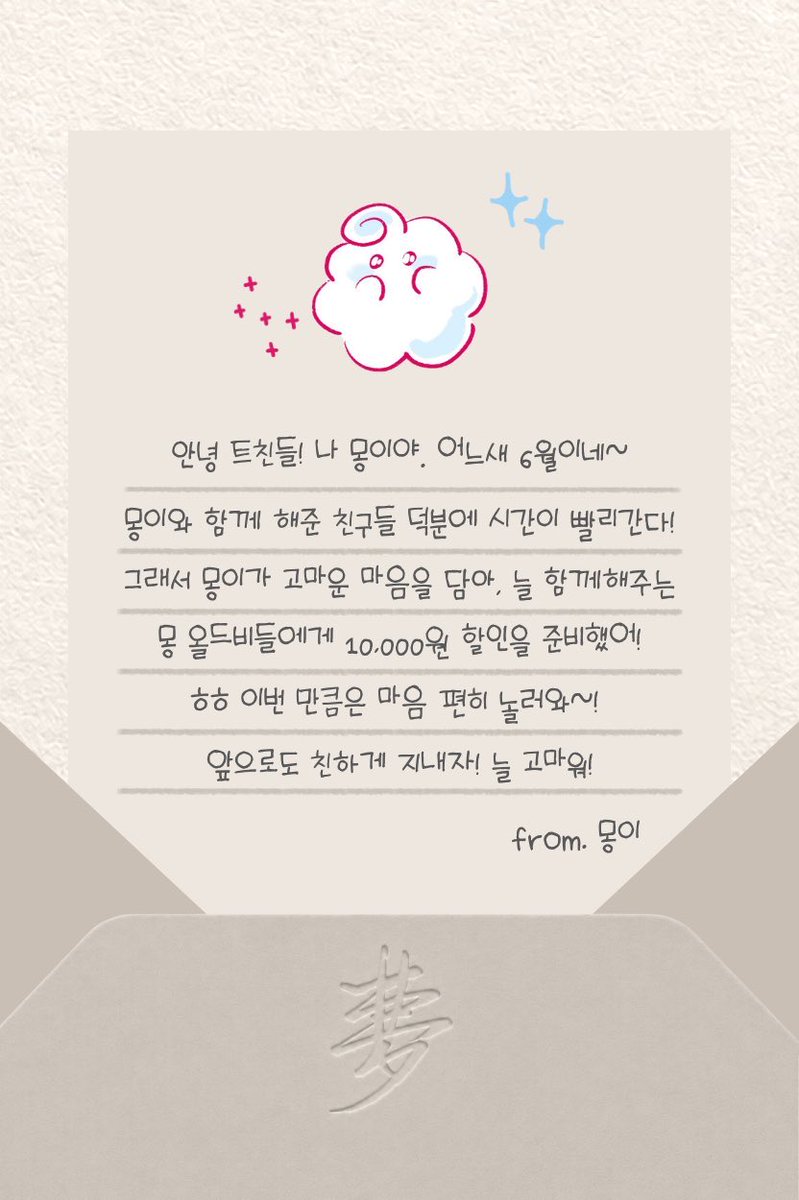 안녕 트친들! 나 몽이야. 어느새 6월이네~
몽이와 함께 해준 친구들 덕분에 시간이 빨리간다!
그래서 몽이가 고마운 마음을 담아, 늘 함께해주는
몽 올드비들에게 10,000원 할인을 준비했어!
ㅎㅎ 이번 만큼은 마음 편히 놀러와~!
앞으로도 친하게 지내자! 늘 고마워!
from. 몽이
夢